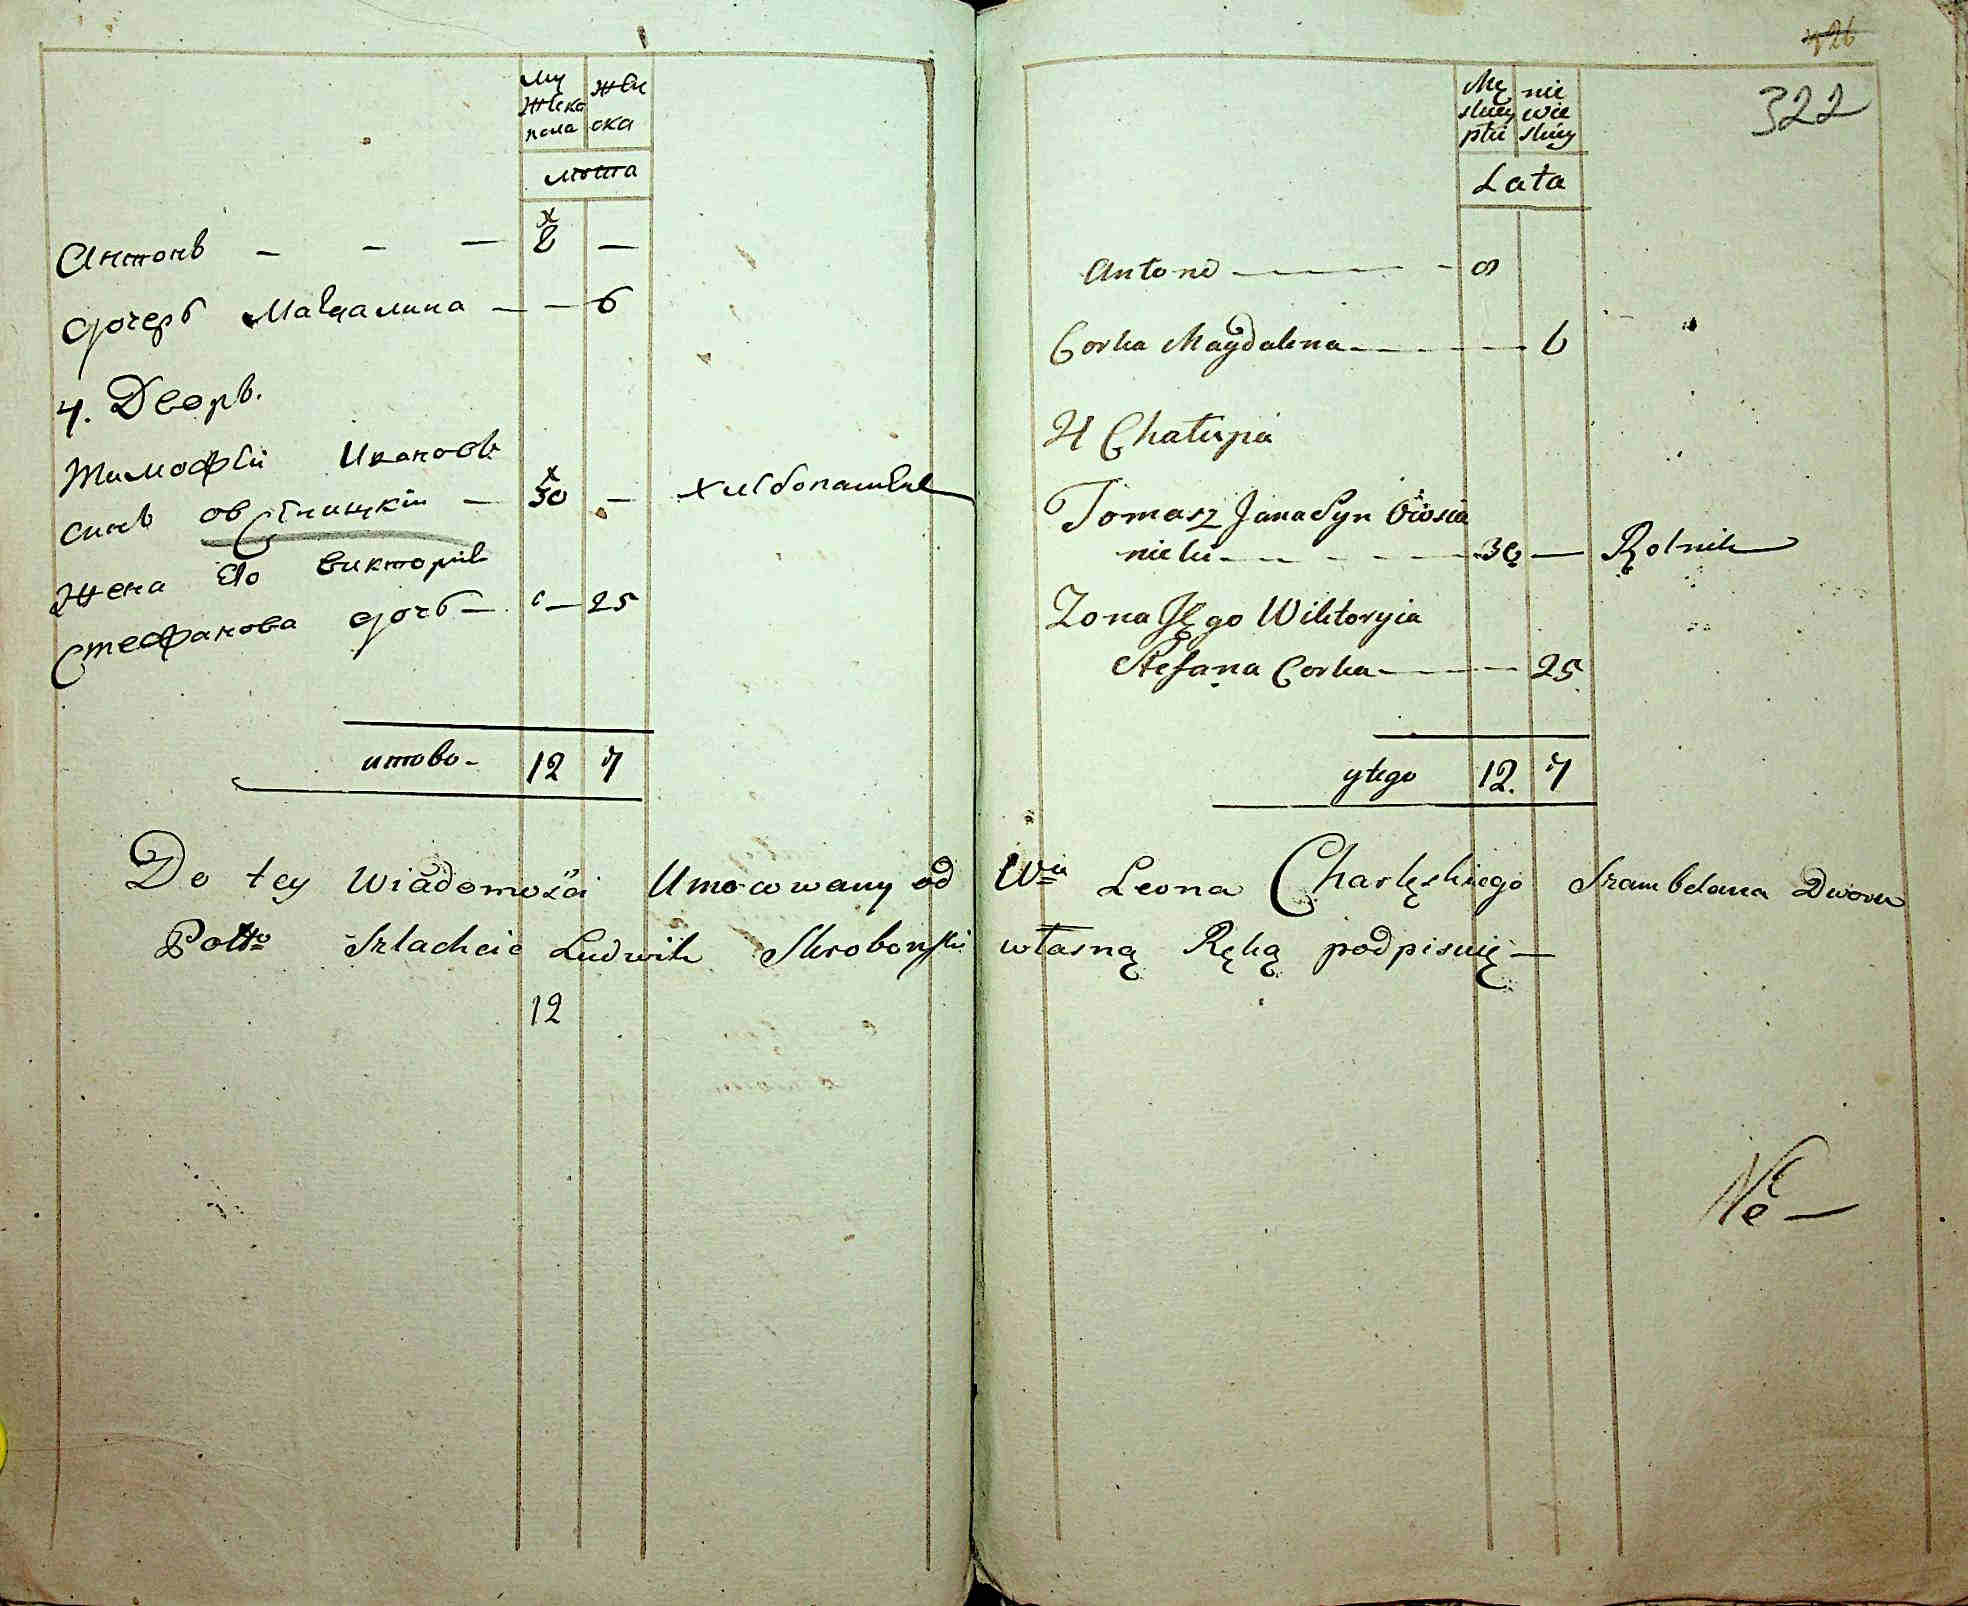 Му
жеска
пола
жен
ска
лѣта
Антонъ — — — 8 —
дочерь Магдалина — — 6
4. Дворъ.
Тимофѣй Ивановъ
синъ Овсѣницкій — 30 — хлѣбопашецъ
Жена его Викторія
Стефанова дочь — — 25
итого - 12 7
Mę
skiey
płci
nie
wie
skiey
Lata
426
322
Antoni — 8
Corka Magdalena — 6
4 Chałupa
Tomasz Jana Syn Owsia
nicki — 30 — Rolnik
Zona Jego Wiktoryia
Stefana Corka — 25
ytego 12. 7
Do tey Wiadomości Umocowany od Wo Leona Charlęskiego Szambelana Dworu
Polło Szlachcic Ludwik Skroboński własną Ręką podpisuię —
12